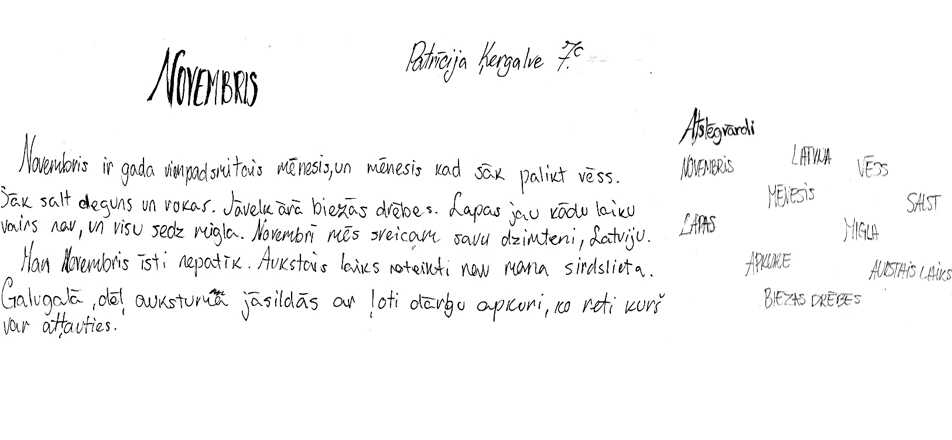 Novembris
Patrīcija Ķergalve 7.c
Novembris ir gada vienpadsmitais mēnesis, un mēnesis kad sāk palikt vēss.
Sāk salt deguns un rokas. Jāvelk ārā biezās drēbes. Lapas jau kādu laiku
vairs nav, un visu sedz migla. Novembrī mēs sveicam savu dzimteni, Latviju.
Man Novembris īsti nepatīk. Aukstais laiks noteikti nav mana sirdslieta.
Galugalā, dēļ aukstuma jāsildās ar ļoti dārgu apkuri, ko reti kurš
var atļauties.
Atslēgvārdi
NOVEMBRIS
LATVIJA
VĒSS
MĒNESIS
SALST
LAPAS
MIGLA
APKURE
AUKSTAIS LAIKS
BIEZAS DRĒBES